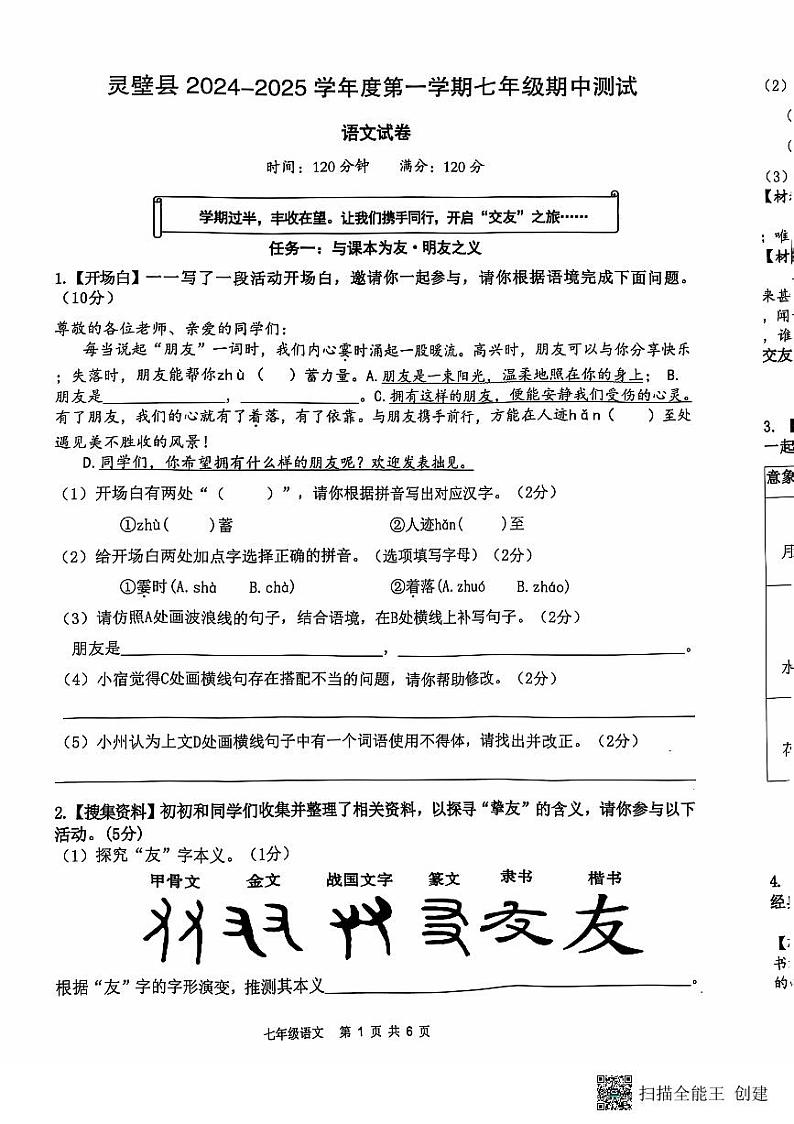 灵璧县 2024-2025 学年度第一学期七年级期中测试
语文试卷
时间：120分钟 满分：120分
学期过半，丰收在望。让我们携手同行，开启“交友”之旅……
任务一：与课本为友·明友之义
1.【开场白】一一写了一段活动开场白，邀请你一起参与，请你根据语境完成下面问题。
（10分）
尊敬的各位老师、亲爱的同学们：
每当说起“朋友”一词时，我们内心霎时涌起一股暖流。高兴时，朋友可以与你分享快乐
；失落时，朋友能帮你zhù（ ）蓄力量。A.朋友是一束阳光，温柔地照在你的身上； B.
朋友是 ， 。C.拥有这样的朋友，便能安静我们受伤的心灵。
有了朋友，我们的心就有了着落，有了依靠。与朋友携手前行，方能在人迹hǎn（ ）至处
遇见美不胜收的风景！
D.同学们，你希望拥有什么样的朋友呢？欢迎发表拙见。
（1）开场白有两处“（ ）”，请你根据拼音写出对应汉字。（2分）
①zhù( )蓄 ②人迹hǎn( )至
（2）给开场白两处加点字选择正确的拼音。（选项填写字母）（2分）
①霎时(A.shà B.chà) ②着落(A.zhuó B.zháo)
（3）请仿照A处画波浪线的句子，结合语境，在B处横线上补写句子。（2分）
朋友是 ， 。
（4）小宿觉得C处画横线句存在搭配不当的问题，请你帮助修改。（2分）
（5）小州认为上文D处画横线句子中有一个词语使用不得体，请找出并改正。（2分）
2.【搜集资料】初初和同学们收集并整理了相关资料，以探寻“挚友”的含义，请你参与以下
活动。(5分)
（1）探究“友”字本义。（1分）
甲骨文 金文 战国文字 篆文 隶书 楷书
友 友
根据“友”字的字形演变，推测其本义 。
七年级语文 第 1 页 共 6 页
（2）
（3）
【材
；唯
【材
来甚
，闻
，谁
交友
3.【
一起
意象
月
水
花
4.
经
【
书
的
扫描全能王 创建